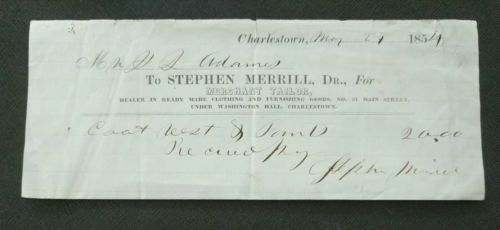 Charlestown, May 29 1854
Mr S L Adames
To STEPHEN MERRILL, Dr., For
MERCHANT TAILOR,
DEALER IN READY MADE CLOTHING AND FURNISHING GOODS, NO. 51 MAIN STREET,
UNDER WASHINGTON HALL, CHARLESTOWN.
Coat Vest & Pants 20.00
Received Pay
Stephen Merrill